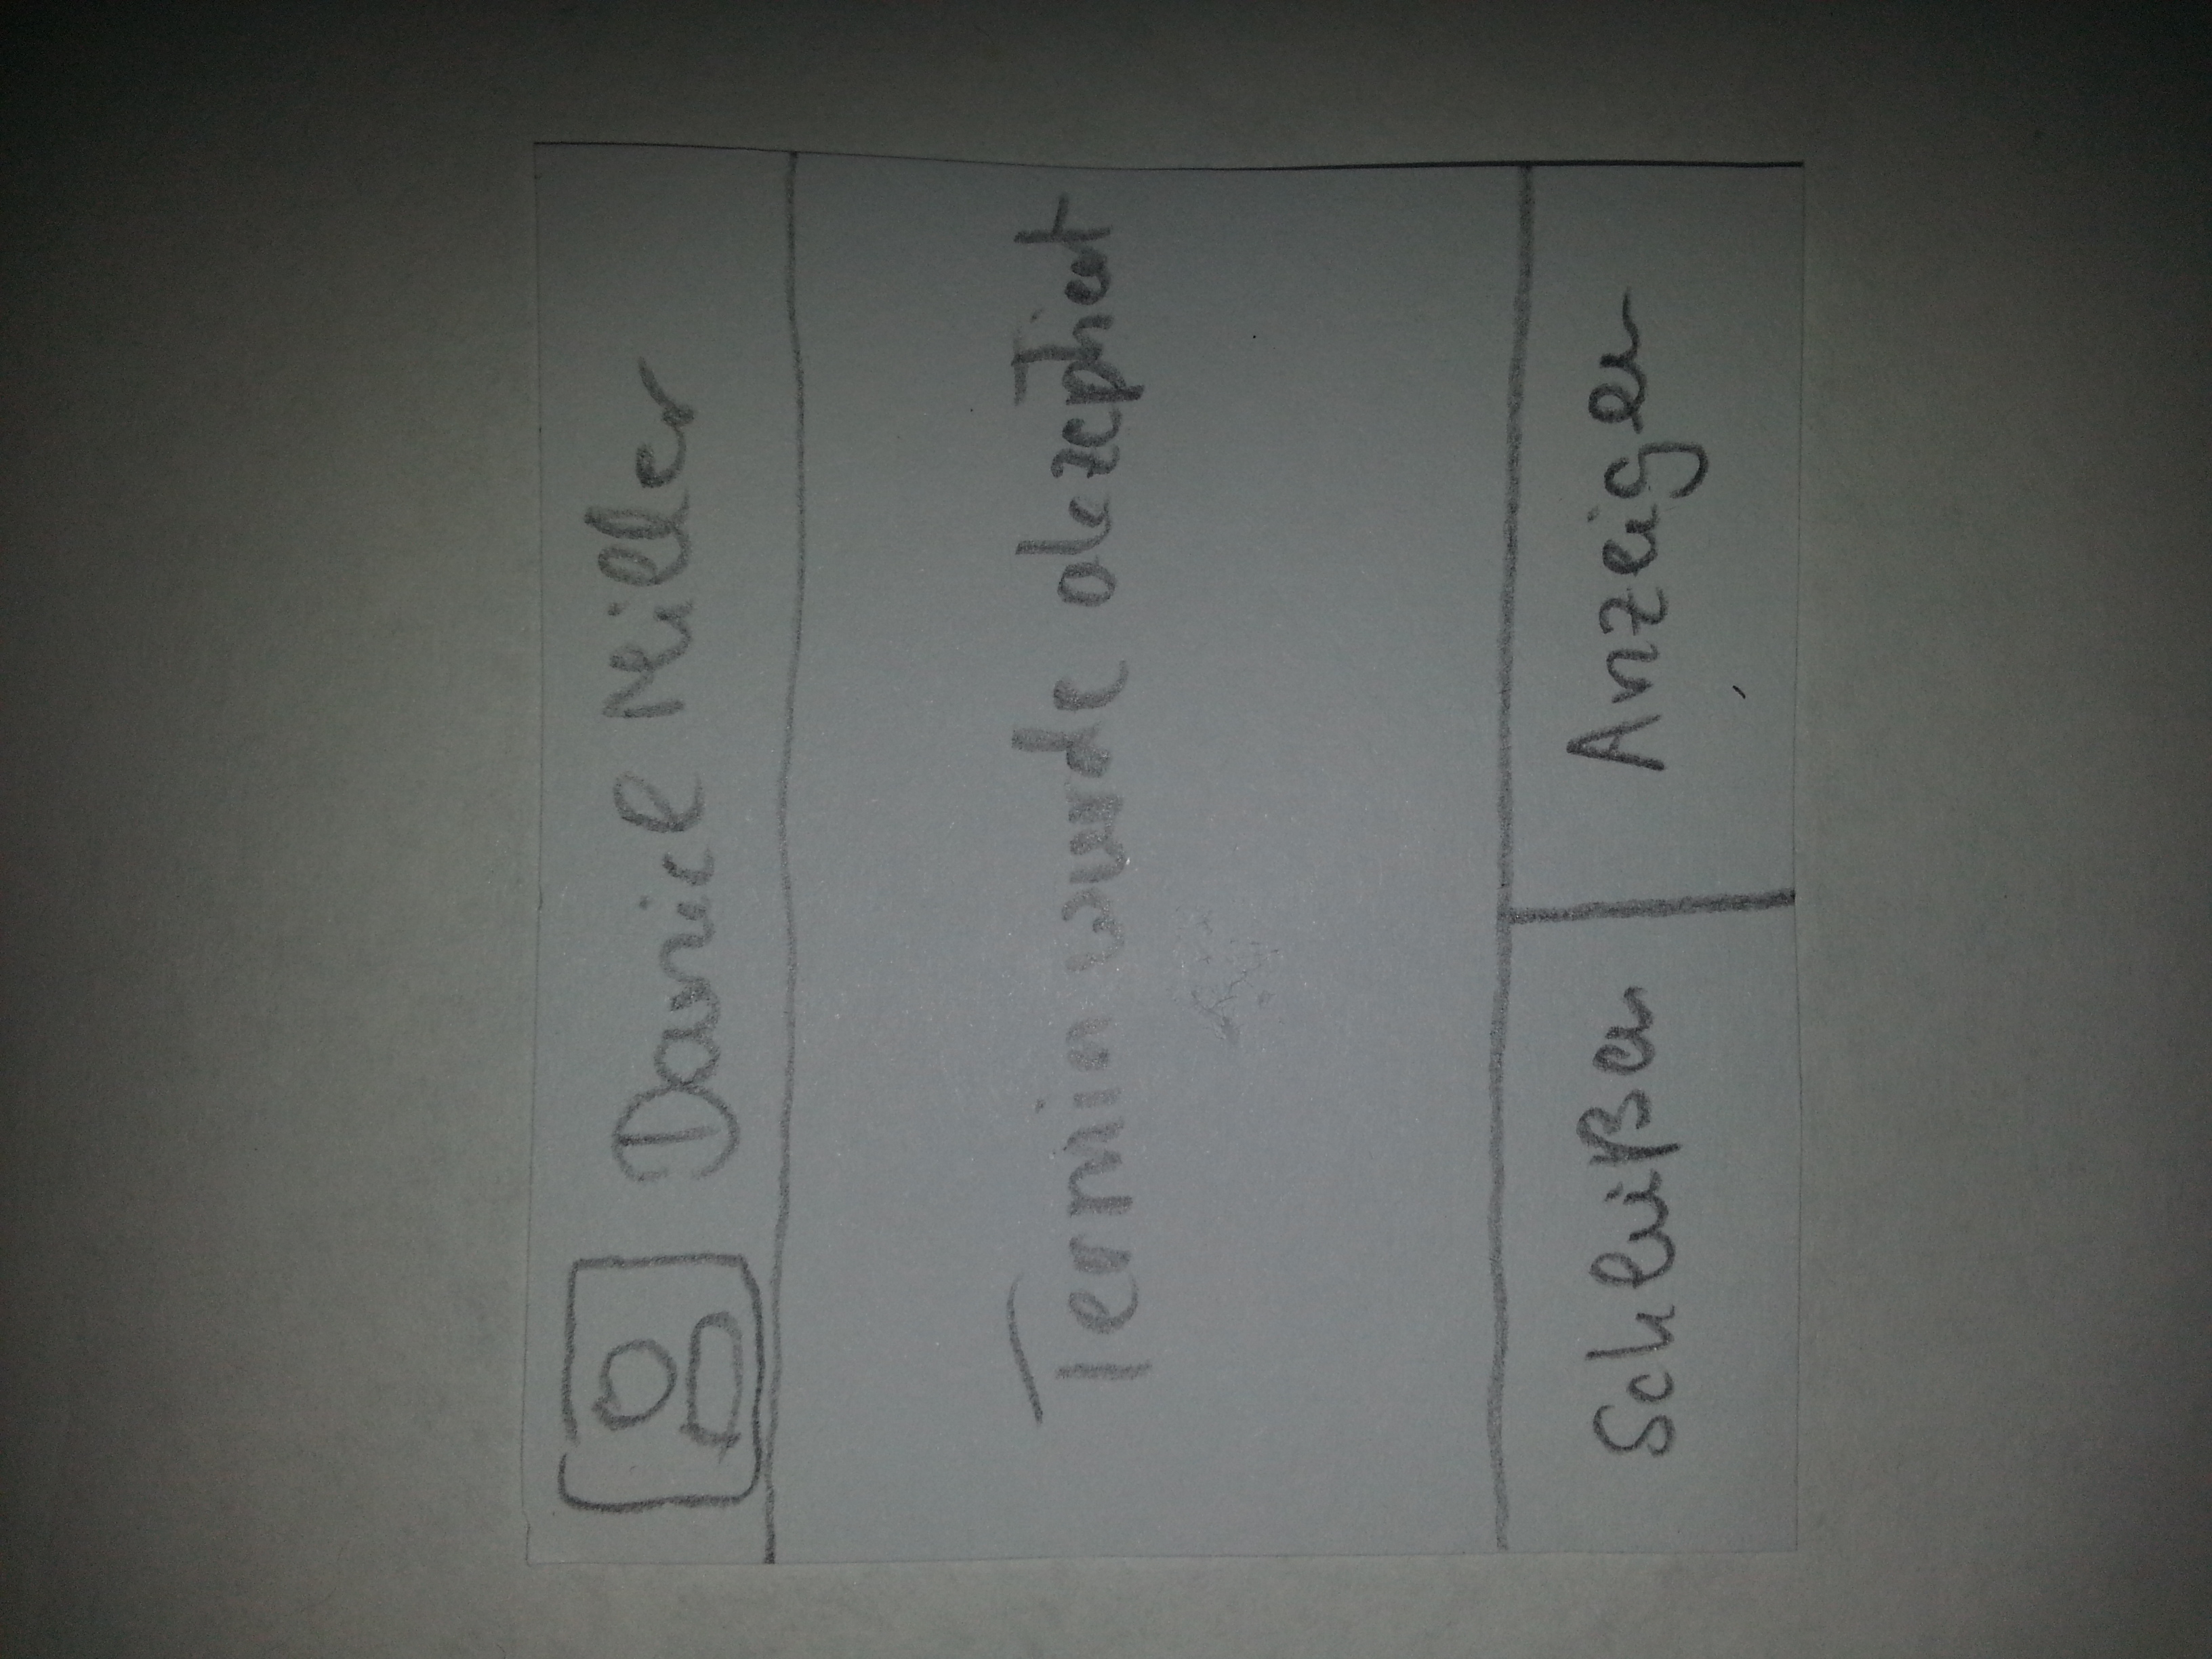 Daniel Miller
Termin wurde akzeptiert
Schleißen Anzeigen